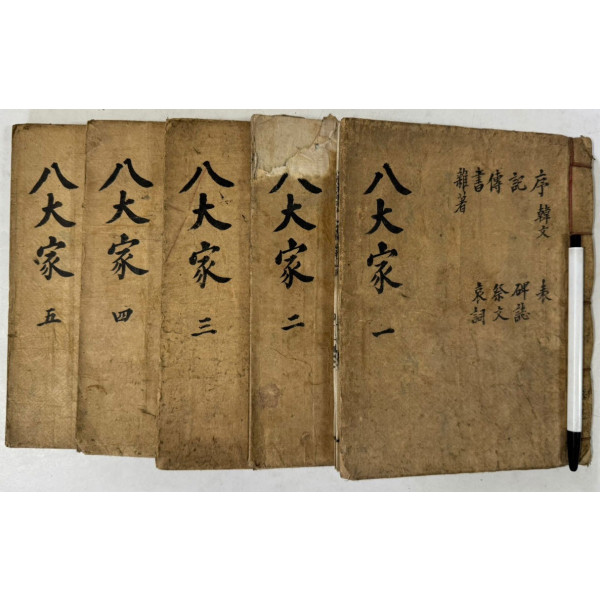 序 韓文 表
記 碑誌
傳 祭文
書 哀詞
雜著
八大家 一
八大家 二
八大家 三
八大家 四
八大家 五